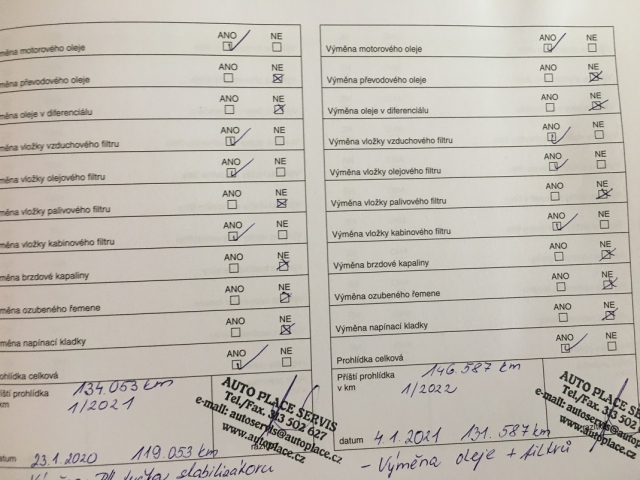 ANO NE
měna motorového oleje
ANO NE
měna převodového oleje
ANO NE
měna oleje v diferenciálu
ANO NE
měna vložky vzduchového filtru
ANO NE
měna vložky olejového filtru
ANO NE
měna vložky palivového filtru
ANO NE
měna vložky kabinového filtru
ANO NE
měna brzdové kapaliny
ANO NE
měna ozubeného řemene
ANO NE
měna napínací kladky
ANO NE
Prohlídka celková
říští prohlídka 134.053 km
km 1/2021
AUTO PLACE SERVIS
Tel./Fax. 313 502 627
e-mail: autoservis@autoplace.cz
www.autoplace.cz
atum 23.1.2020 119.053 km
stabilizátoru
ANO NE
Výměna motorového oleje
ANO NE
Výměna převodového oleje
ANO NE
Výměna oleje v diferenciálu
ANO NE
Výměna vložky vzduchového filtru
ANO NE
Výměna vložky olejového filtru
ANO NE
Výměna vložky palivového filtru
ANO NE
Výměna vložky kabinového filtru
ANO NE
Výměna brzdové kapaliny
ANO NE
Výměna ozubeného řemene
ANO NE
Výměna napínací kladky
ANO NE
Prohlídka celková
Příští prohlídka 146.587 km
v km 1/2022
AUTO PLACE
Tel./Fax. 313 502
e-mail: autoservis@autop
www.autoplace.cz
datum 4.1.2021 131.587 km
- Výměna oleje + filtrů